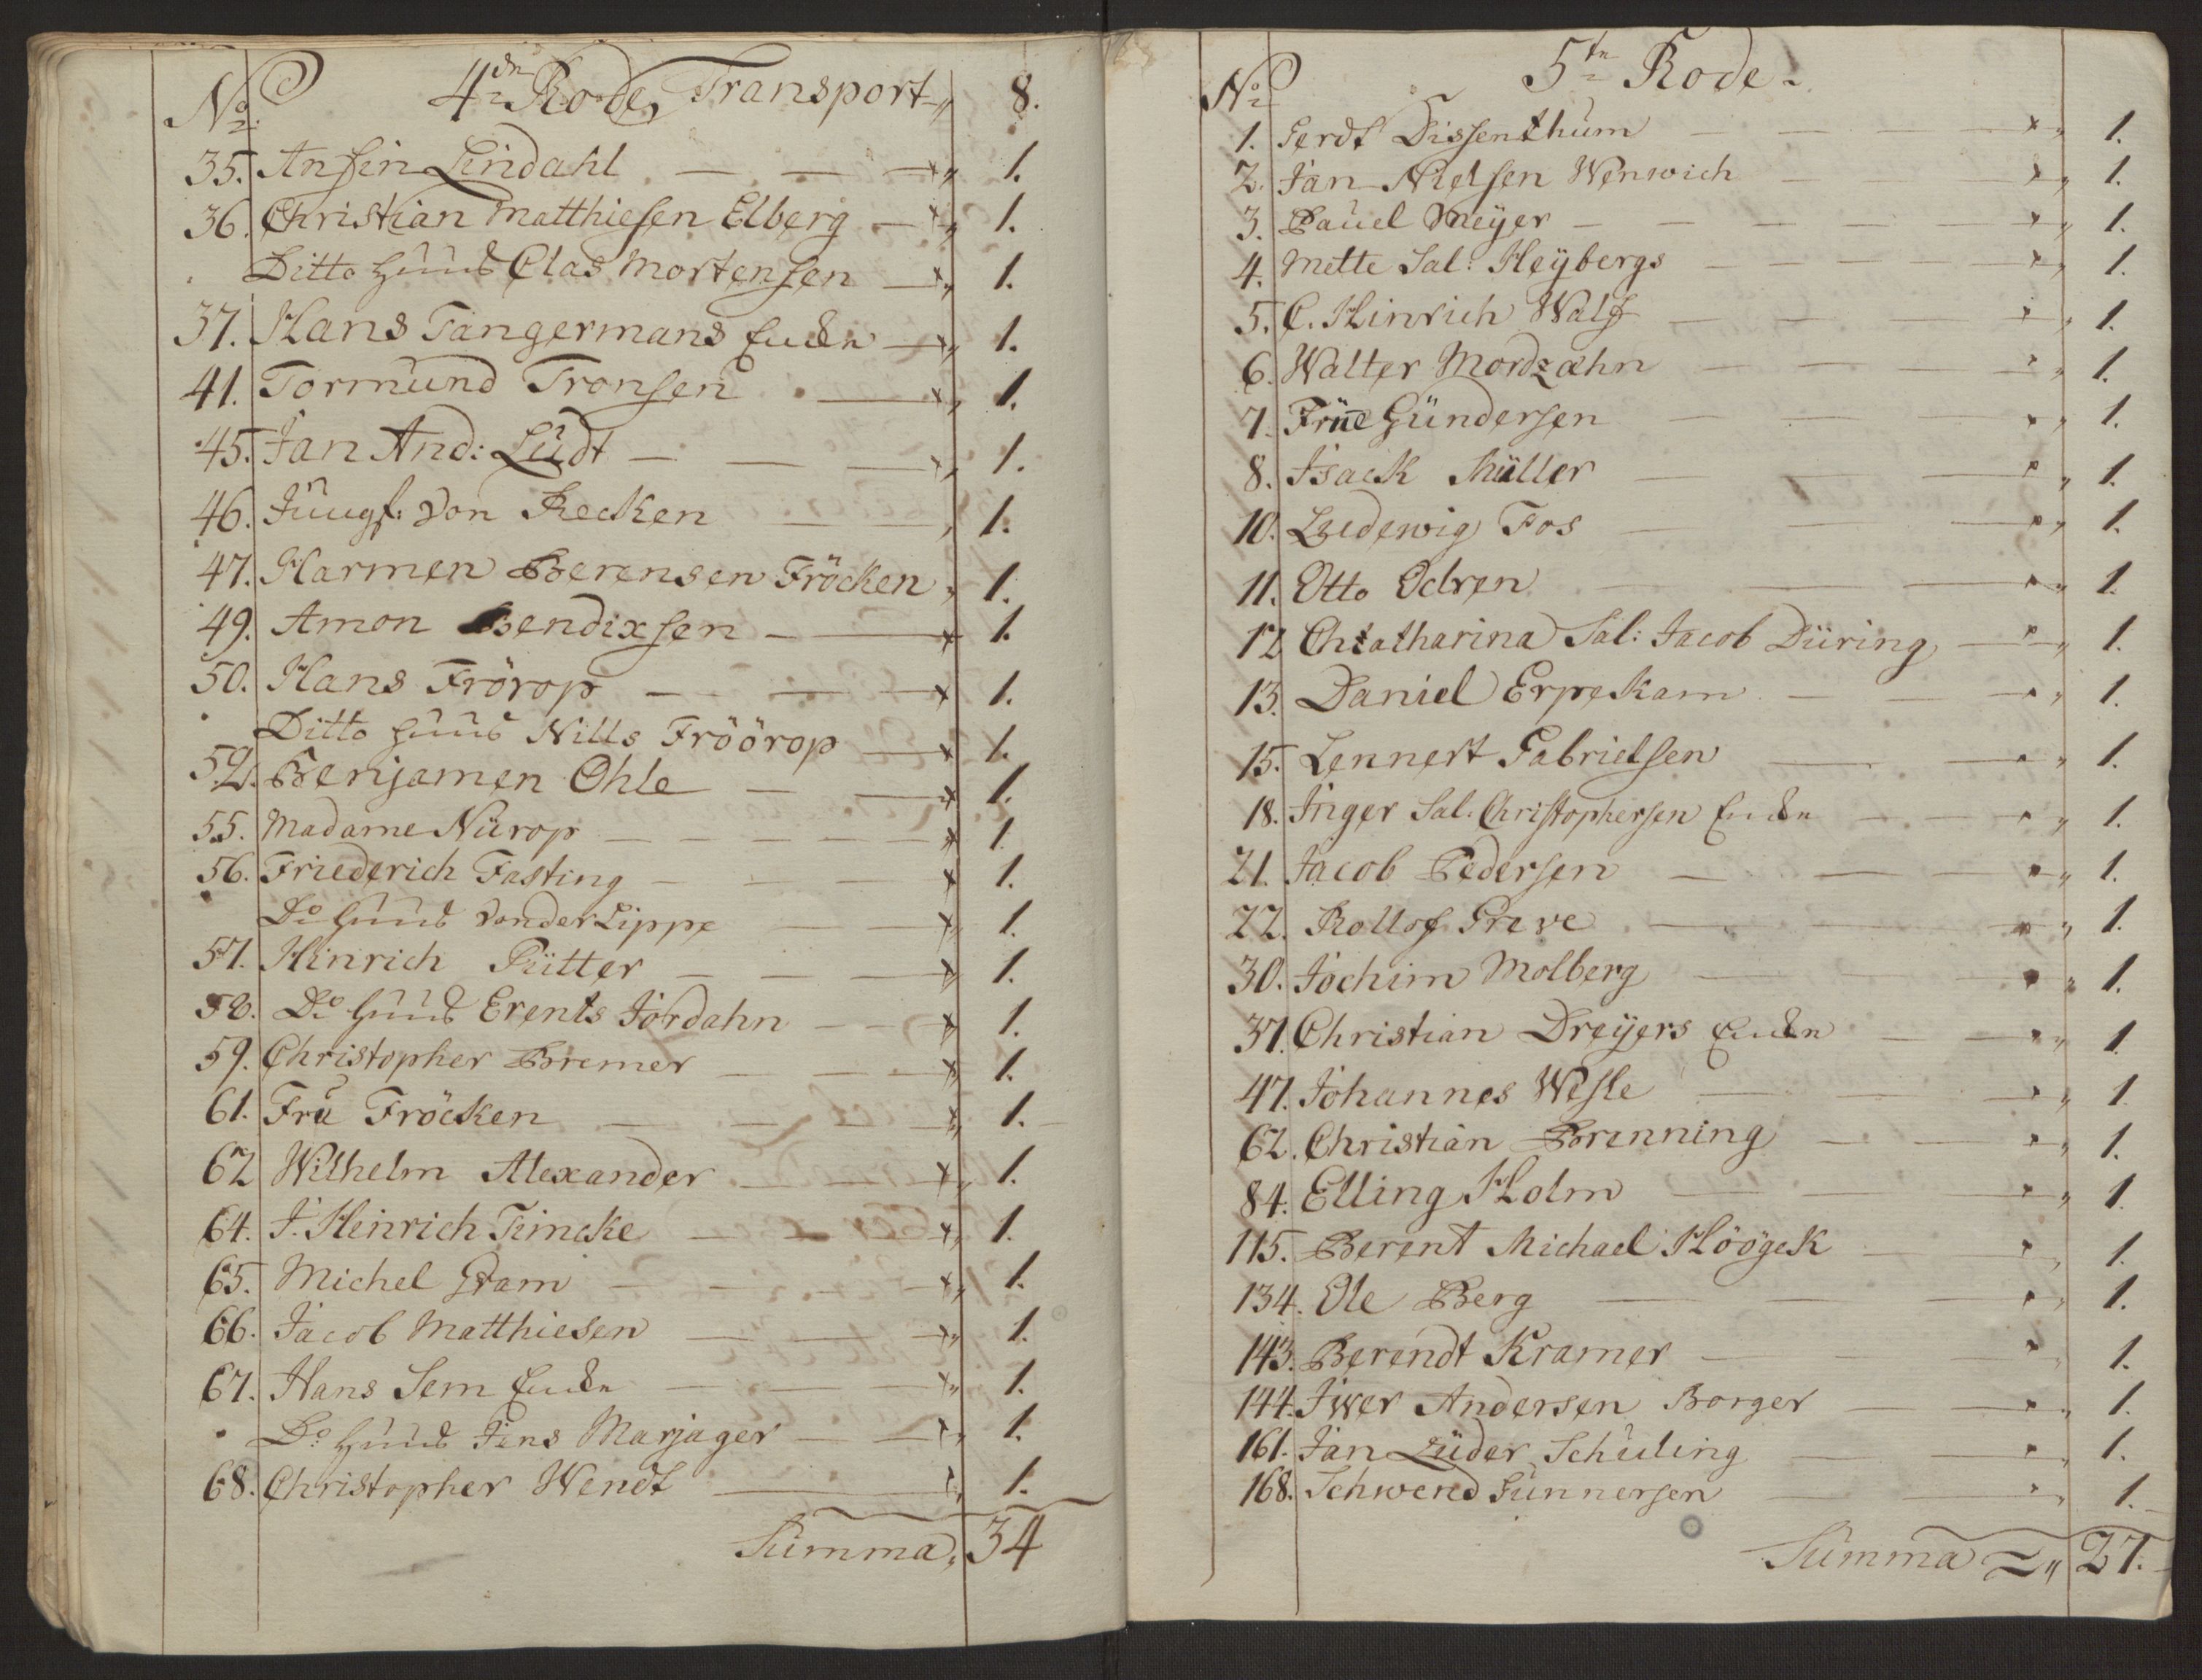 No 4de Rode, Transport „ 8.
35. Ansfin Lindahl — — — „ 1.
36. Christian Matthiesen Elberg — „ 1.
Ditto Huus Clas Mortensen — „ 1.
37. Hans Tangermans Encke — „ 1.
41. Tormund Tronsen — „ 1.
45. Jan And: Lüdt — — — „ 1.
46. Jungf: Von Recken — — „ 1.
47. Harmen Berensen Fröcken „ 1.
49. Amon Bendixsen — — 1.
50. Hans Frörop — — — 1.
Ditto Huus Nills Fröörop — 1.
52. Benjamen Ohle — — 1.
55. Madame Nürop — — — — 1.
56. Friederich Fasting — — — 1.
Do Huus Vonder Lippe — — „ 1.
57. Hinrich Pütter — — — „ 1.
58. Do Huus Erents Jördahn — — „ 1.
59. Christopher Bremer — — — „ 1.
61. Fru Fröcken — — — „ 1.
62 Wilhelm Alexander — — „ 1.
64. J. Heinrich Timcke — — — „ 1.
65. Michel Gram — — — — „ 1.
66. Jacob Matthiesen — — — „ 1.
67. Hans Sem Encke — — — „ 1.
Do Huus Jens Marjager — — „ 1.
68. Christopher Wendt — — „ 1.
Summa. 34
No 5te Rode.
1. Gerdt Dissenthum — — — — „ 1.
2. Jan Nielsen Wenwich — — „ 1.
3. Pauel Meyer — — — — „ 1.
4. Mette Sal: Heybergs — — — — „ 1.
5. C. Hinrich Walf — — — „ 1.
6. Walter Mordzæhn — — — „ 1.
7. Früe Gündersen — — — „ 1.
8. Isack Müller — — — „ 1.
10. Ludewig Fos — — — „ 1.
11. Otto Odren — — — „ 1.
12 Chatharina Sal: Jacob Düring — „ 1.
13. Daniel Erpekam — — — „ 1.
15. Lennert Gabrielsen — — „ 1.
18. Inger Sal. Christophersen Encke — — „ 1.
21. Jacob Pedersen — — — „ 1.
22. Rollof Greve — — — „ 1.
30. Jochim Molberg — — — „ 1.
37. Christian Dreyers Encke — — „ 1.
47. Johannes Wesle — — — „ 1.
62. Christian Brenning — — „ 1.
84. Elling Holm — — — „ 1.
115. Berent Michael Höögek — — „ 1.
134. Ole Berg — — — „ 1.
143. Berendt Kramer — — — „ 1.
144. Iwer Andersen Borger — — „ 1.
161. Jan Lüder Schuling — — „ 1.
168. Schwend Gunnersen — — „ 1.
Summa „ 27.